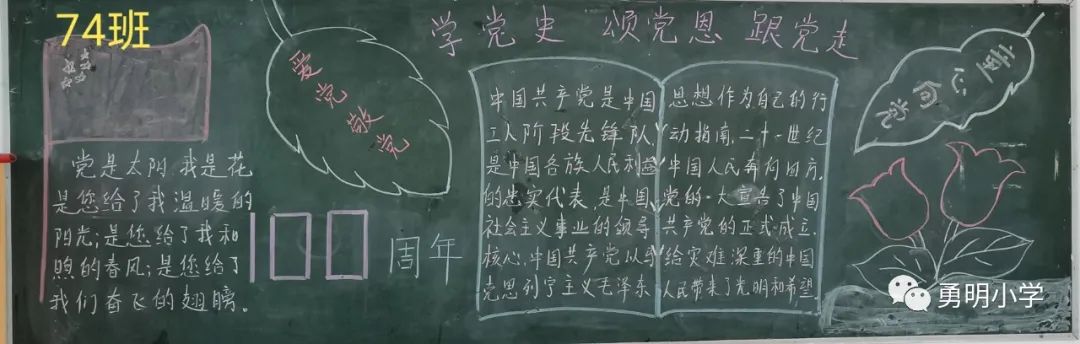 74班
学党史 颂党恩 跟党走
党是太阳,我是花
是您给了我温暖的
阳光;是您给了我和
煦的春风;是您给了
我们奋飞的翅膀。
爱党敬党
100周年
中国共产党是中国
工人阶段先锋队,
是中国各族人民利益
的忠实代表,是中国
社会主义事业的领导
核心,中国共产党以马
党思列宁主义毛泽东
思想作为自己的行
动指南,二十一世纪
中国人民奔向四方,
党的一大宣告了中国
共产党的正式成立,
给灾难深重的中国
人民带来了光明和希望.
童心向党
勇明小学